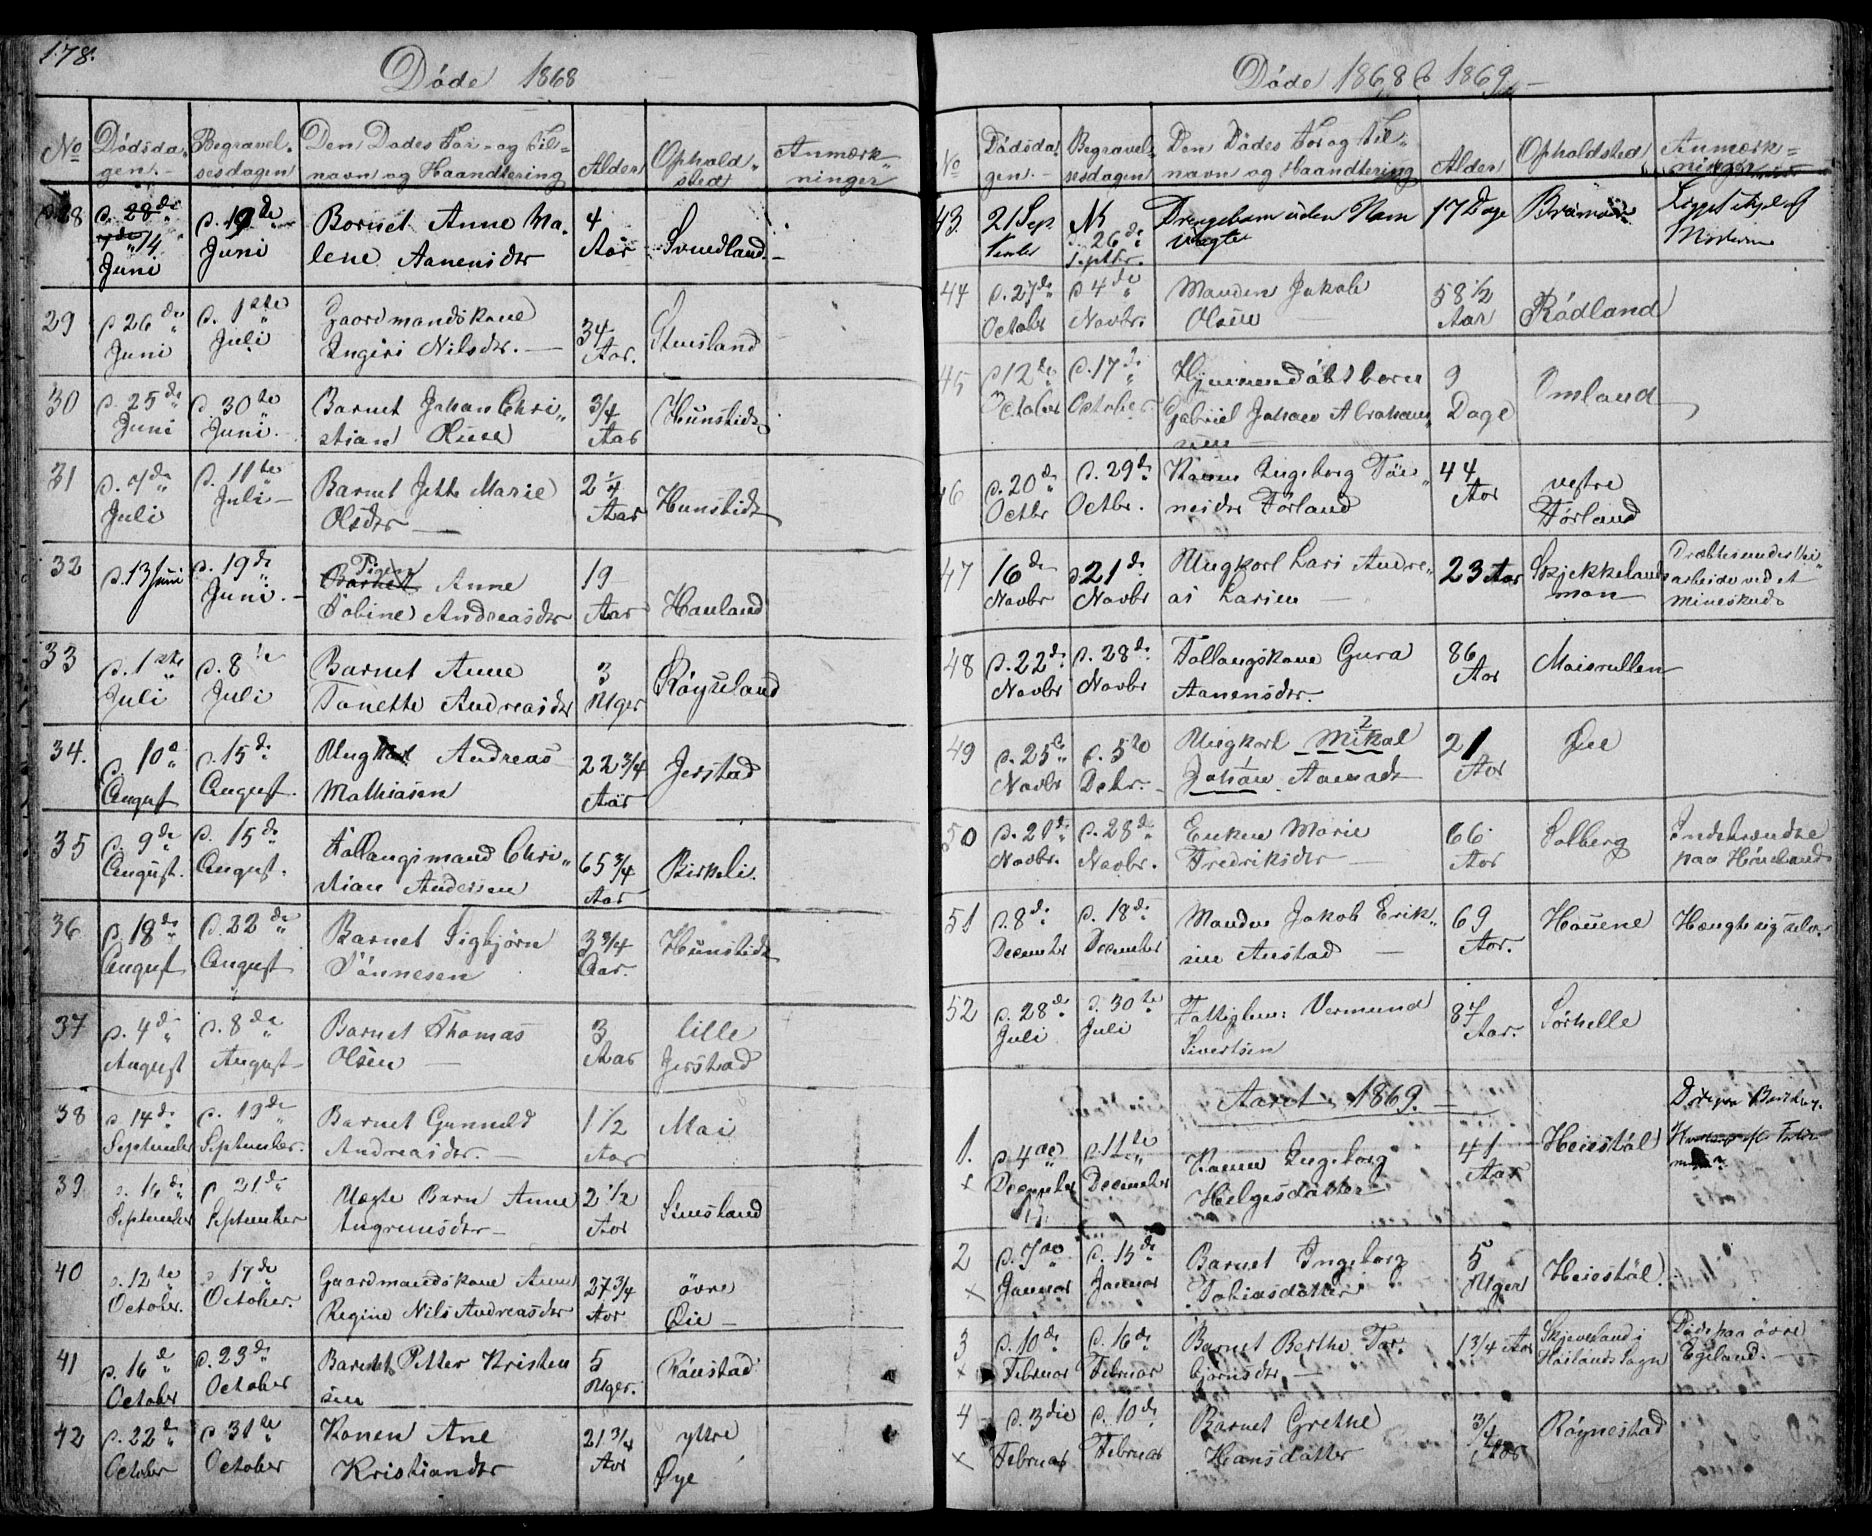 178.
Döde 1868
No
Dödsda-
gen.-
Begravel-
sesdagen
Den Dödes For- og Til-
navn og Haandtering
Alder
Ophold-
sted
Anmærk-
ninger
28
d. 14
Juni
d. 19de
Juni
Barnet Anne Ma-
lene Aanensdtr
4
Aar
Svindland
29
d. 26de
Juni
d. 1ste
Juli
Gaardmandskone
Ingeri Nilsdtr.
34
Aar.
Stensland
30
d. 25de
Juni
d. 30te
Juni.
Barnet Johan Chri-
stian Olsen
3/4
Aar
Hunstidt
31
d. 7de
Juli
d. 11te
Juli
Barnet Jette Marie
Olsdtr
2 1/4
Aar
Hunstidt
32
d. 13 Juni
d. 19de
Juni.
Pigen
Anne
Tobine Andreasdtr
19
Aar
Hauland
33
d. 1ste
Juli
d. 8de
Juli
Barnet Anne
Tonette Andreasdtr
3
Uger
Röyseland
34.
d. 10de
August
d. 15de
August.
Ungkarl Andreas
Mathiasen
22 3/4
Aar
Jerstad
35
d. 9de
August.
d. 15de
August.
Follaugsmand Chri-
stian Andersen
65 3/4
Aar
Birkeli.
36
d. 18de
August
d. 22de
August
Barnet Sigbjörn
Tönnesen
3 3/4
Aar.
Hunstidt
37
d. 4de
August
d. 8de
August
Barnet Thomas
Olsen
3
Aar
lille
Jerstad
38
d. 14de
September
d. 19de
September.
Barnet Gunnild
Andreasdtr.
1 1/2
Aar
Moi
39
d. 16de
September
d. 21de
September
Uægte Barn Anne
Angrimsdtr
2 1/2
Aar
40
d. 12te
October.
d. 17de
October.
Gaardmandskone Anne
Regine Nils Andreasdtr
27 3/4
Aar
övre
Öie
41
d. 16de
October
d. 23de
October
Barnet Petter Kristen
sen
5
Uger.
Rönstad
42
d. 22de
October
d. 31te
October
Konen Ane
Kristiansdtr
21 3/4
Aar
ytre
Öye
Döde 1868 & 1869
No
Dödsda-
gen.-
Begravel-
sesdagen
Den Dödes For og Til-
navn og Haandtering
Alder
Opholdsted
Anmærk-
ninger
43.
21 Sep
tember
d. 26de
Septbr.
Drengebarn uden Navn
17 Dage
Moderen
44
d. 27de
Octobr
d. 4de
Novbr.
Manden Jakob
Olsen
58 1/2
Aar
Rödland
45
d. 12te
October
d. 17de
October
Hjemmedöbt barn
Gabriel Johan Abraham-
sen
9
Dage
Omland
46
d. 20de
Octbr
d. 29de
Octbr.
Konen Ingeborg Tör-
resdtr Förland
44
Aar
vestre
Förland
47
16de
Novbr
d 21de
Novbr
Ungkarl Lars Andre-
as Larsen
23 Aar
Skjekkeland
moen
Dræbtes under Vei-
arbeide ved et
Mineskud
48
d. 22de
Novbr
d. 28de
Novbr
Follaugskone Gura
Aanensdtr.
86
Aar
Moisrullen
49
d. 25de
Novbr
d. 5te
Debr.
2
Ungkarl Mikal
1
Johan
21
Aar
50
d. 21de
Novbr.
d. 28de
Novbr.
Enken Marie
Fredriksdtr
66
Aar
Solberg
Indebrændte
paa Höieland
51
d. 8de
December
d. 18de
December
Manden Jakob Erik-
sen Austad
69
Aar.
Hauene
Hængte sig selv.
52
d. 28de
Juli
d. 30te
Juli
Fattiglem: Vermund
Sivertsen
87
Aar.
Sörhelle
Aaret 1869.
1.
x
d. 4de
December
d. 11te
December
Konen Ingeborg
Helgesdatter
41
Aar
Heiestöl
2
x
d. 7de
Januar
d. 15de
Januar
Barnet Ingeborg
Tobiasdatter
5
Uger
Heiestöl.
3
x
d. 10de
Februar
d. 16de
Februar
Barnet Berthe Tor-
björnsdtr
1 3/4 Aar
Skjeveland i
Höilands Sogn
Döde paa övre
Egeland.
4
x
d. 3die
Februar
d. 10de
Februar
Barnet Grethe
Hansdatter
3/4
Aar
Röynestad